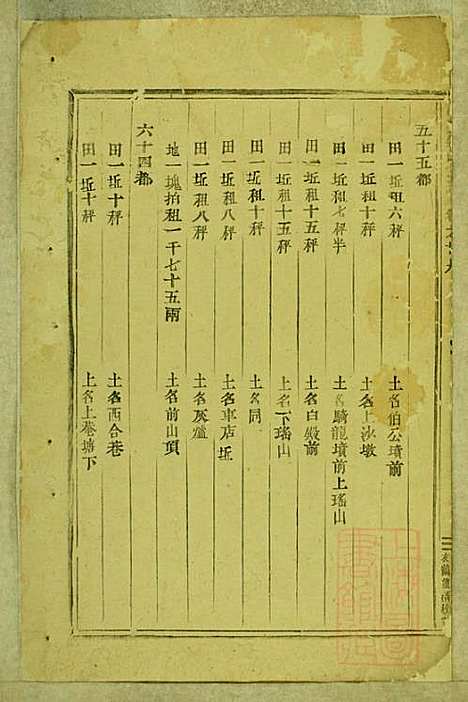 五十五都
田一坵租六秤 土名伯公墳前
田一坵租十秤 土名上沙墩
田一坵租七秤半 土名騎龍墳前上瑤山
田一坵租十五秤 土名白殿前
田一坵租十五秤 土名下瑤山
田一坵租十秤 土名同
田一坵租八秤 土名車店坵
田一坵租八秤 土名灰爐
地一塊拍租一千七十五兩 土名前山頂
六十四都
田一坵十秤 土名西合巷
田一坵十秤 土名上巷塘下